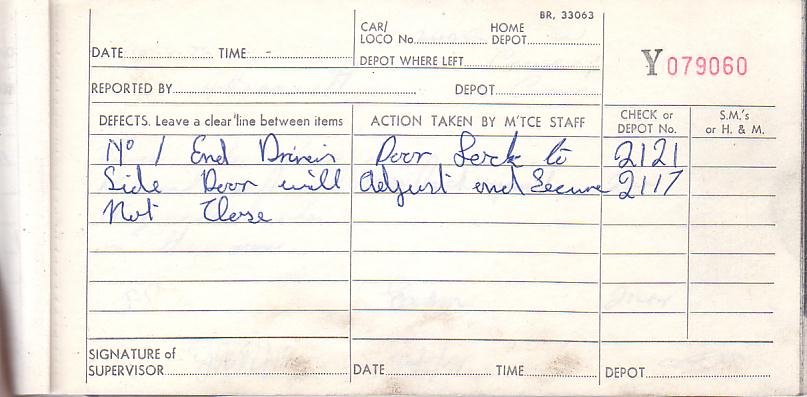 BR, 33063
DATE TIME - CAR/ LOCO No. HOME DEPOT
DEPOT WHERE LEFT
Y 079060
REPORTED BY DEPOT
DEFECTS. Leave a clear line between items ACTION TAKEN BY M'TCE STAFF CHECK or DEPOT No. S.M.'s or H. & M.
No 1 End Drivin Door Lock to 2121
Side Door will Adjust and Secure 2117
Not Close
SIGNATURE of SUPERVISOR DATE TIME DEPOT